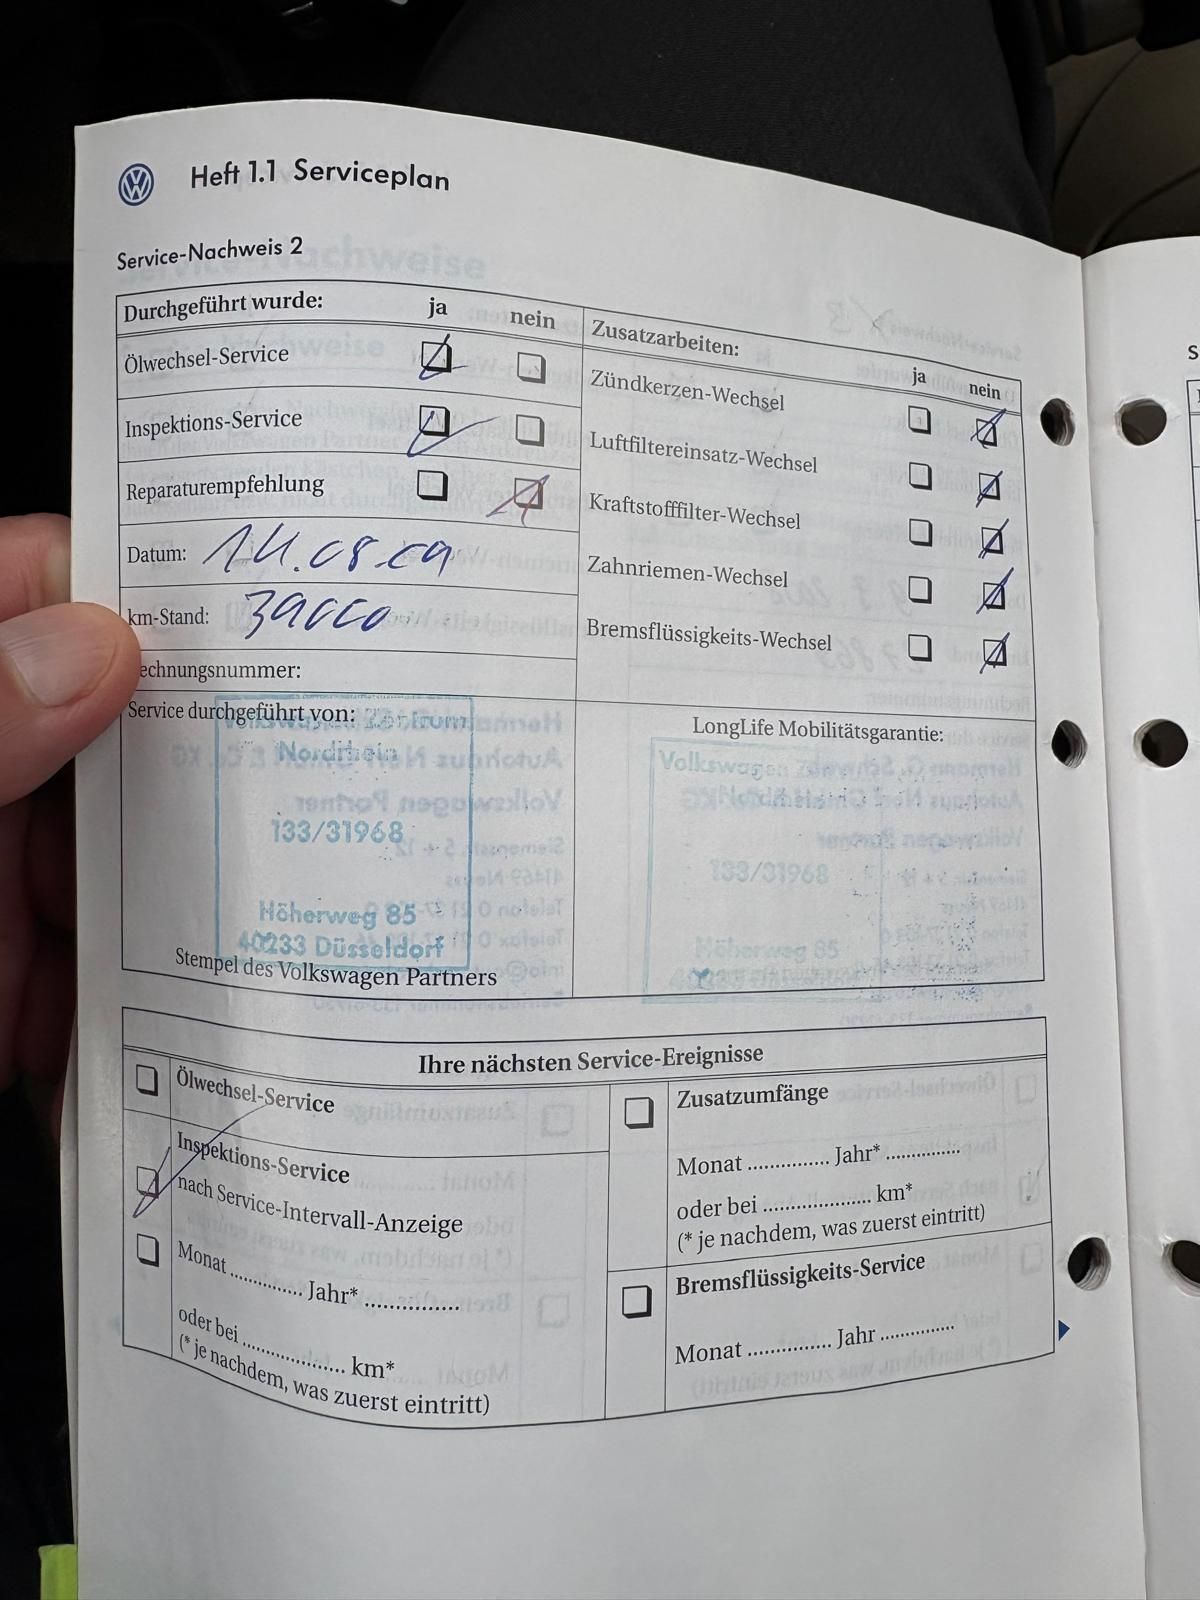 Heft 1.1 Serviceplan
Service-Nachweis 2
Durchgeführt wurde: ja nein
Ölwechsel-Service
Inspektions-Service
Reparaturempfehlung
Datum: 14.08.09
km-Stand: 39000
echnungsnummer:
Service durchgeführt von:
Volkswagen Zentrum
Nordrhein
133/31968
Höherweg 85
40233 Düsseldorf
Stempel des Volkswagen Partners
Zusatzarbeiten:
ja nein
Zündkerzen-Wechsel
Luftfiltereinsatz-Wechsel
Kraftstofffilter-Wechsel
Zahnriemen-Wechsel
Bremsflüssigkeits-Wechsel
LongLife Mobilitätsgarantie:
Volkswagen
133/31968
Höherweg 85
Ihre nächsten Service-Ereignisse
Ölwechsel-Service
Inspektions-Service
nach Service-Intervall-Anzeige
Monat .............. Jahr* ..............
oder bei .................... km*
(* je nachdem, was zuerst eintritt)
Zusatzumfänge
Monat .............. Jahr* ..............
oder bei .................... km*
(* je nachdem, was zuerst eintritt)
Bremsflüssigkeits-Service
Monat .............. Jahr ..............